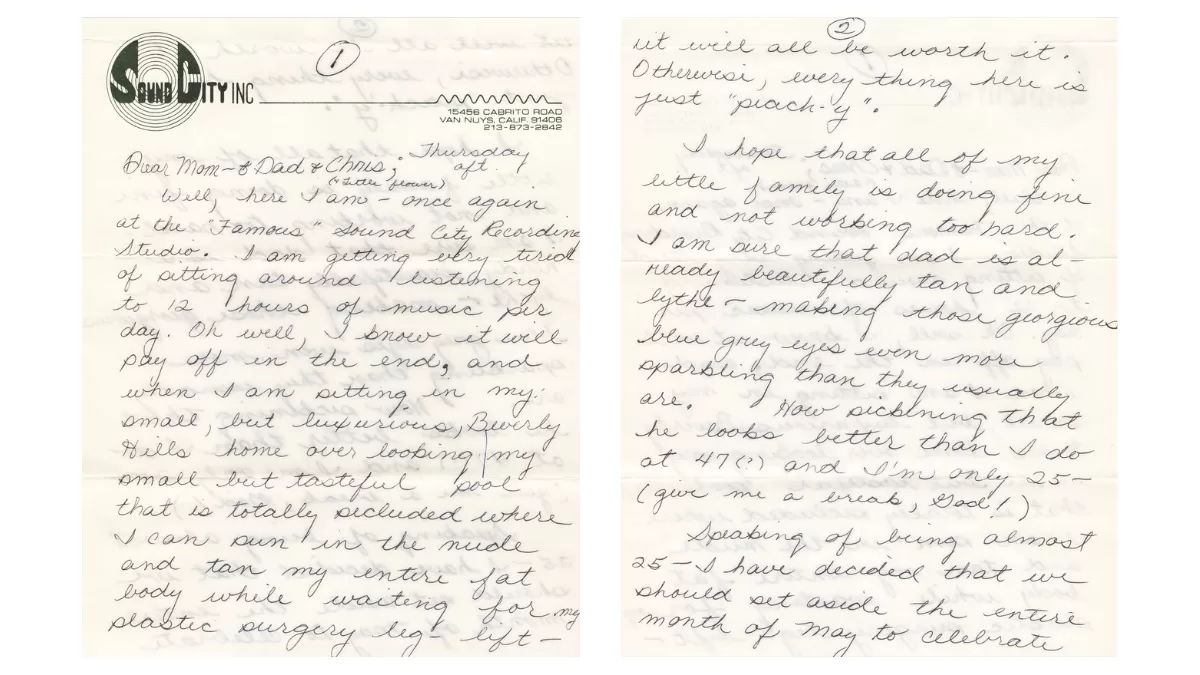 ①
SOUND CITY INC
15456 CABRITO ROAD
VAN NUYS, CALIF. 91406
213-873-2842
Thursday
aft.
Dear Mom - & Dad & Chris;
(& little flower)
Well, here I am - once again
at the "Famous" Sound City Recording
Studio. I am getting very tired
of sitting around listening
to 12 hours of music per
day. Oh well, I know it will
pay off in the end, and
when I am sitting in my
small, but luxurious, Beverly
Hills home over looking my
small but tasteful pool
that is totally secluded where
I can sun in the nude
and tan my entire fat
body while waiting for my
plastic surgery leg-lift -
②
it will all be worth it.
Otherwise, every thing here is
just "peach-y".
I hope that all of my
little family is doing fine
and not working too hard.
I am sure that dad is al-
ready beautifully tan and
lythe - making those georgious
blue grey eyes even more
sparkling than they usually
are. How sickning that
he looks better than I do
at 47(?) and I'm only 25-
(give me a break, God!)
Speaking of being almost
25 - I have decided that we
should set aside the entire
month of May to celebrate